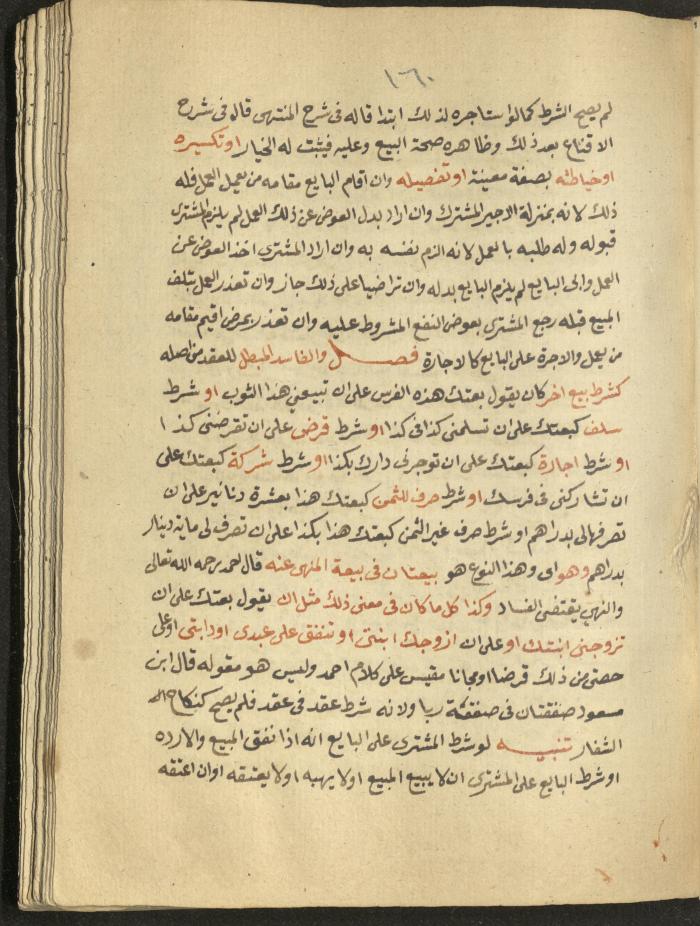 ١٦٠
لم يصح الشرط كما لو استاجره لذلك ابتدا قاله فى شرح المنتهى قال فى شرح
الاقناع بعد ذلك وظاهره صحة البيع وعليه فيثبت له الخيار او تكسيره
او خياطته بصفة معينة او تفصيله وان اقام البايع مقامه من يعمل العمل فله
ذلك لانه بمنزلة الاجير المشترك وان اراد بدل العوض عن ذلك العمل لم يلزم المشترى
قبوله وله طلبه بالعمل لانه الزم نفسه به وان اراد المشترى اخذ العوض عن
العمل وابى البايع لم يلزم البايع بدله وان تراضيا على ذلك جاز وان تعذر العمل بتلف
المبيع قبله رجع المشترى بعوض النفع المشروط عليه وان تعذر بمرض اقيم مقامه
من يعمل والاجرة على البايع كالاجارة فصل والفاسد المبطل للعقد من اصله
كشرط بيع اخر كان يقول بعتك هذه الفرس على ان تبيعني هذا الثوب او شرط
سلف كبعتك على ان تسلمنى كذا فى كذا او شرط قرض على ان تقرضنى كذا
او شرط اجارة كبعتك على ان توجرنى دارك بكذا او شرط شركة كبعتك على
ان تشاركنى فى فرسك او شرط صرف للثمن كبعتك هذا بعشرة دنانير على ان
تصرفها لى بدراهم او شرط صرف غير الثمن كبعتك هذا بكذا على ان تصرف لى ماية دينار
بدراهم وهو اى وهذا النوع هو بيعتان فى بيعة المنهى عنه قال احمد رحمه الله تعالى
والنهى يقتضى الفساد وكذا كل ما كان فى معنى ذلك مثل ان يقول بعتك على ان
تزوجنى ابنتك او على ان ازوجك ابنتى او تنفق على عبدى او دابتى او على
حصتى من ذلك قرضا او مجانا مقيس على كلام احمد وليس هو مقوله قال ابن
مسعود صفقتان فى صفقة ربا ولانه شرط عقد فى عقد فلم يصح كنكاح
الشغار تنبيه لو شرط المشترى على البايع انه اذا نفق المبيع والا رده
او شرط البايع على المشترى ان لا يبيع المبيع او لا يهبه او لا يعتقه او ان اعتقه